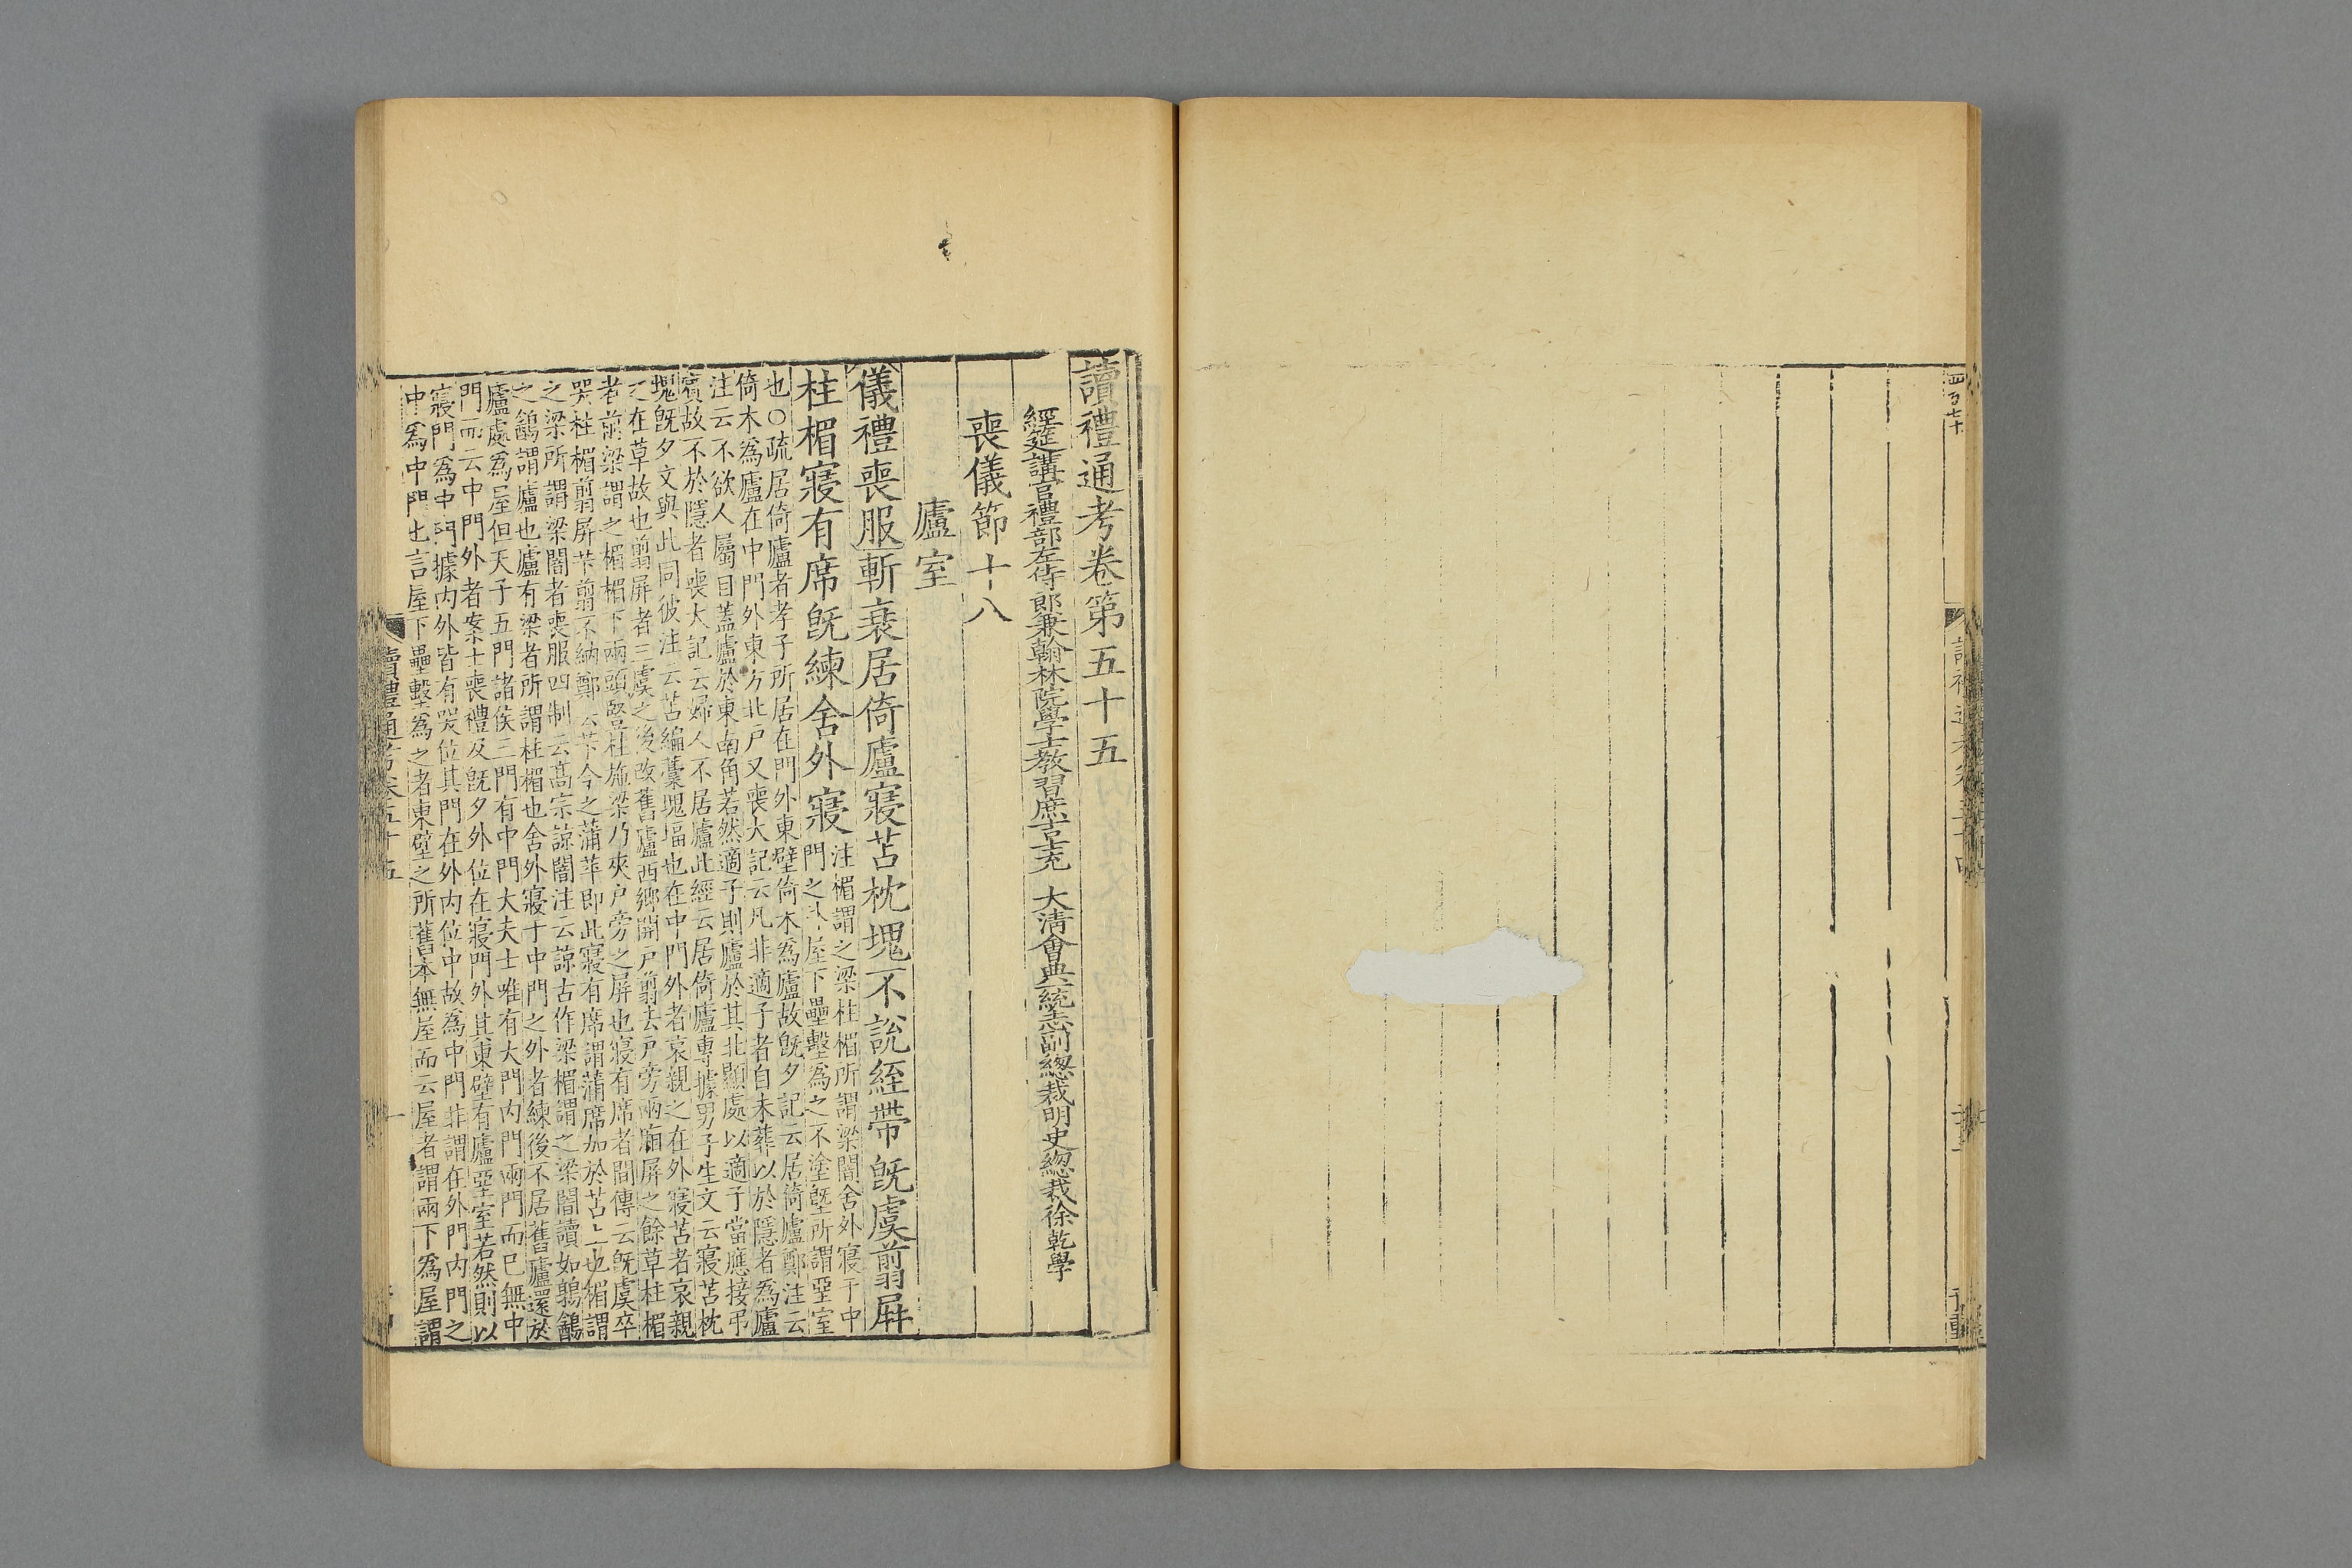 讀禮通考卷第五十五
經筵講官禮部左侍郎兼翰林院學士教習庶吉士充 大清會典一統志副總裁明史總裁徐乾學
喪儀節十八
廬室
儀禮喪服斬衰居倚廬寢苫枕塊不說絰帶旣虞翦屛
柱楣寢有席旣練舍外寢
注楣謂之梁柱楣所謂梁闇舍外寢于中
門之外屋下壘墼為之不塗塈所謂堊室
也○疏居倚廬者孝子所居在門外東壁倚木為廬故旣夕記云居倚廬鄭注云
倚木為廬在中門外東方北戶又喪大記云凡非適子者自未葬以於隱者為廬
注云不欲人屬目蓋廬於東南角若然適子則廬於其北顯處以適子當應接弔
賓故不於隱者喪大記云婦人不居廬此經云居倚廬專據男子生文云寢苫枕
塊旣夕文與此同彼注云苫編藁塊堛也在中門外者哀親之在外寢苫者哀親
之在草故也翦屛者三虞之後改舊廬西鄉開戶翦去戶旁兩廂屛之餘草柱楣
者前梁謂之楣楣下兩頭豎柱施梁乃夾戶旁之屛也寢有席者間傳云旣虞卒
哭柱楣翦屛芐翦不納鄭云芐今之蒲苹即此寢有席謂蒲席加於苫上也楣謂
之梁所謂梁闇者喪服四制云高宗諒闇注云諒古作梁楣謂之梁闇讀如鶉鷂
之鷂謂廬也廬有梁者所謂柱楣也舍外寢于中門之外者練後不居舊廬還於
廬處為屋但天子五門諸侯三門有中門大夫士唯有大門內門兩門而已無中
門而云中門外者案士喪禮及旣夕外位在寢門外其東壁有廬堊室若然則以
寢門為中門據內外皆有哭位其門在外內位中故為中門非謂在外門內門之
中為中門也言屋下壘墼為之者東壁之所舊本無屋而云屋者謂兩下為屋謂
讀禮通考卷五十五
一
四百七十
讀禮通考卷五十四